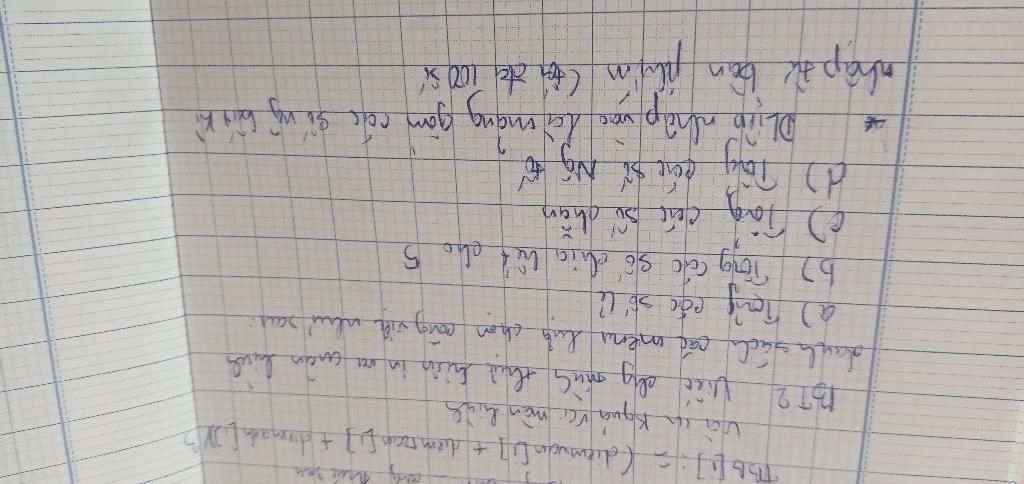 TBB[i] := (diemvan[i] + diemtoan[i] +
và in kquả ra màn hình
BT2 Viết chg trình thực hiện in ra màn hình
danh sách các menu lựa chọn công việc như sau:
a) Tổng các số lẻ
b) Tổng các số chia hết cho 5
c) Tổng các số chẵn
d) Tổng các số Ng tố
* Dliệu nhập vào là mảng gồm các số ng bất kì
nhập từ bàn phím (tối đa 100 số